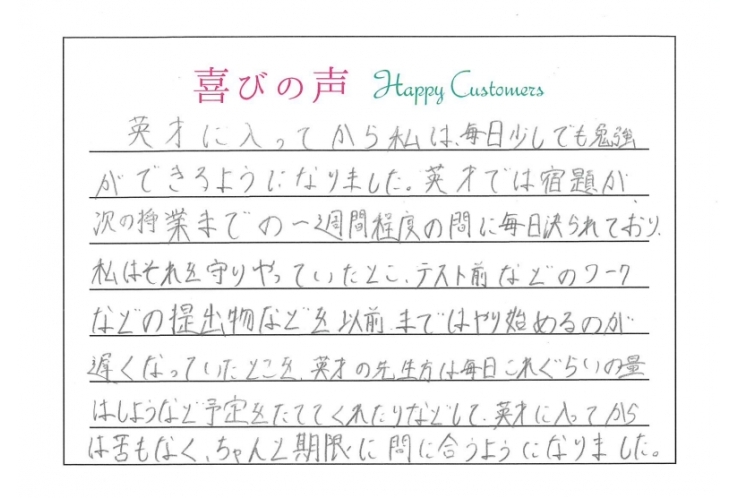 喜びの声 Happy Customers
英才に入ってから私は、毎日少しでも勉強
ができるようになりました。英才では宿題が、
次の授業までの一週間程度の間に毎日決られており、
私はそれを守りやっていたとこ、テスト前などのワーク
などの提出物などを以前まではやり始めるのが
遅くなっていたとこを、英才の先生方は毎日これぐらいの量
はしようなど予定をたててくれたりなどして、英才に入ってから
は苦もなく、ちゃんと期限に間に合うようになりました。